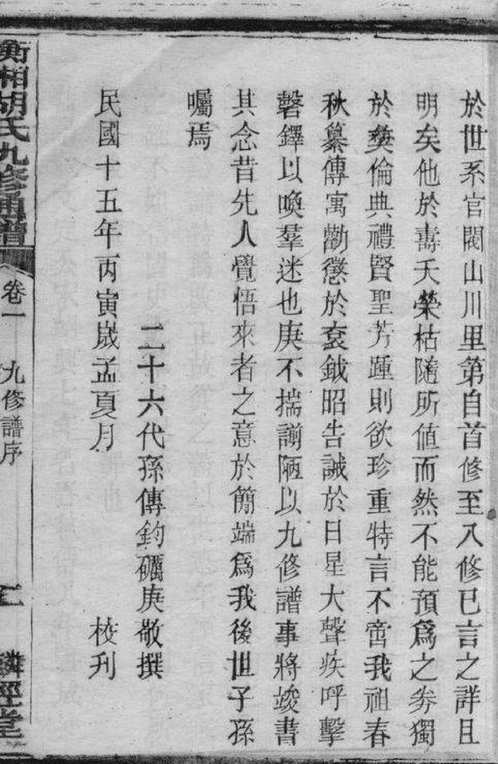 於世系官閥山川里第自首修至八修已言之詳且
明矣他於壽夭榮枯隨所値而然不能預爲之券獨
於彝倫典禮賢聖芳踵則欲珍重特言不啻我祖春
秋纂傳寓勸懲於袞鉞昭告誡於日星大聲疾呼擊
磬鐸以喚羣迷也庚不揣謭陋以九修譜事將竣書
其念昔先人覺悟來者之意於簡端爲我後世子孫
囑焉
二十六代孫傳鈞礪庚敬撰
民國十五年丙寅歲孟夏月 校刋
衡湘胡氏九修通譜 卷一 九修譜序 二 麟經堂